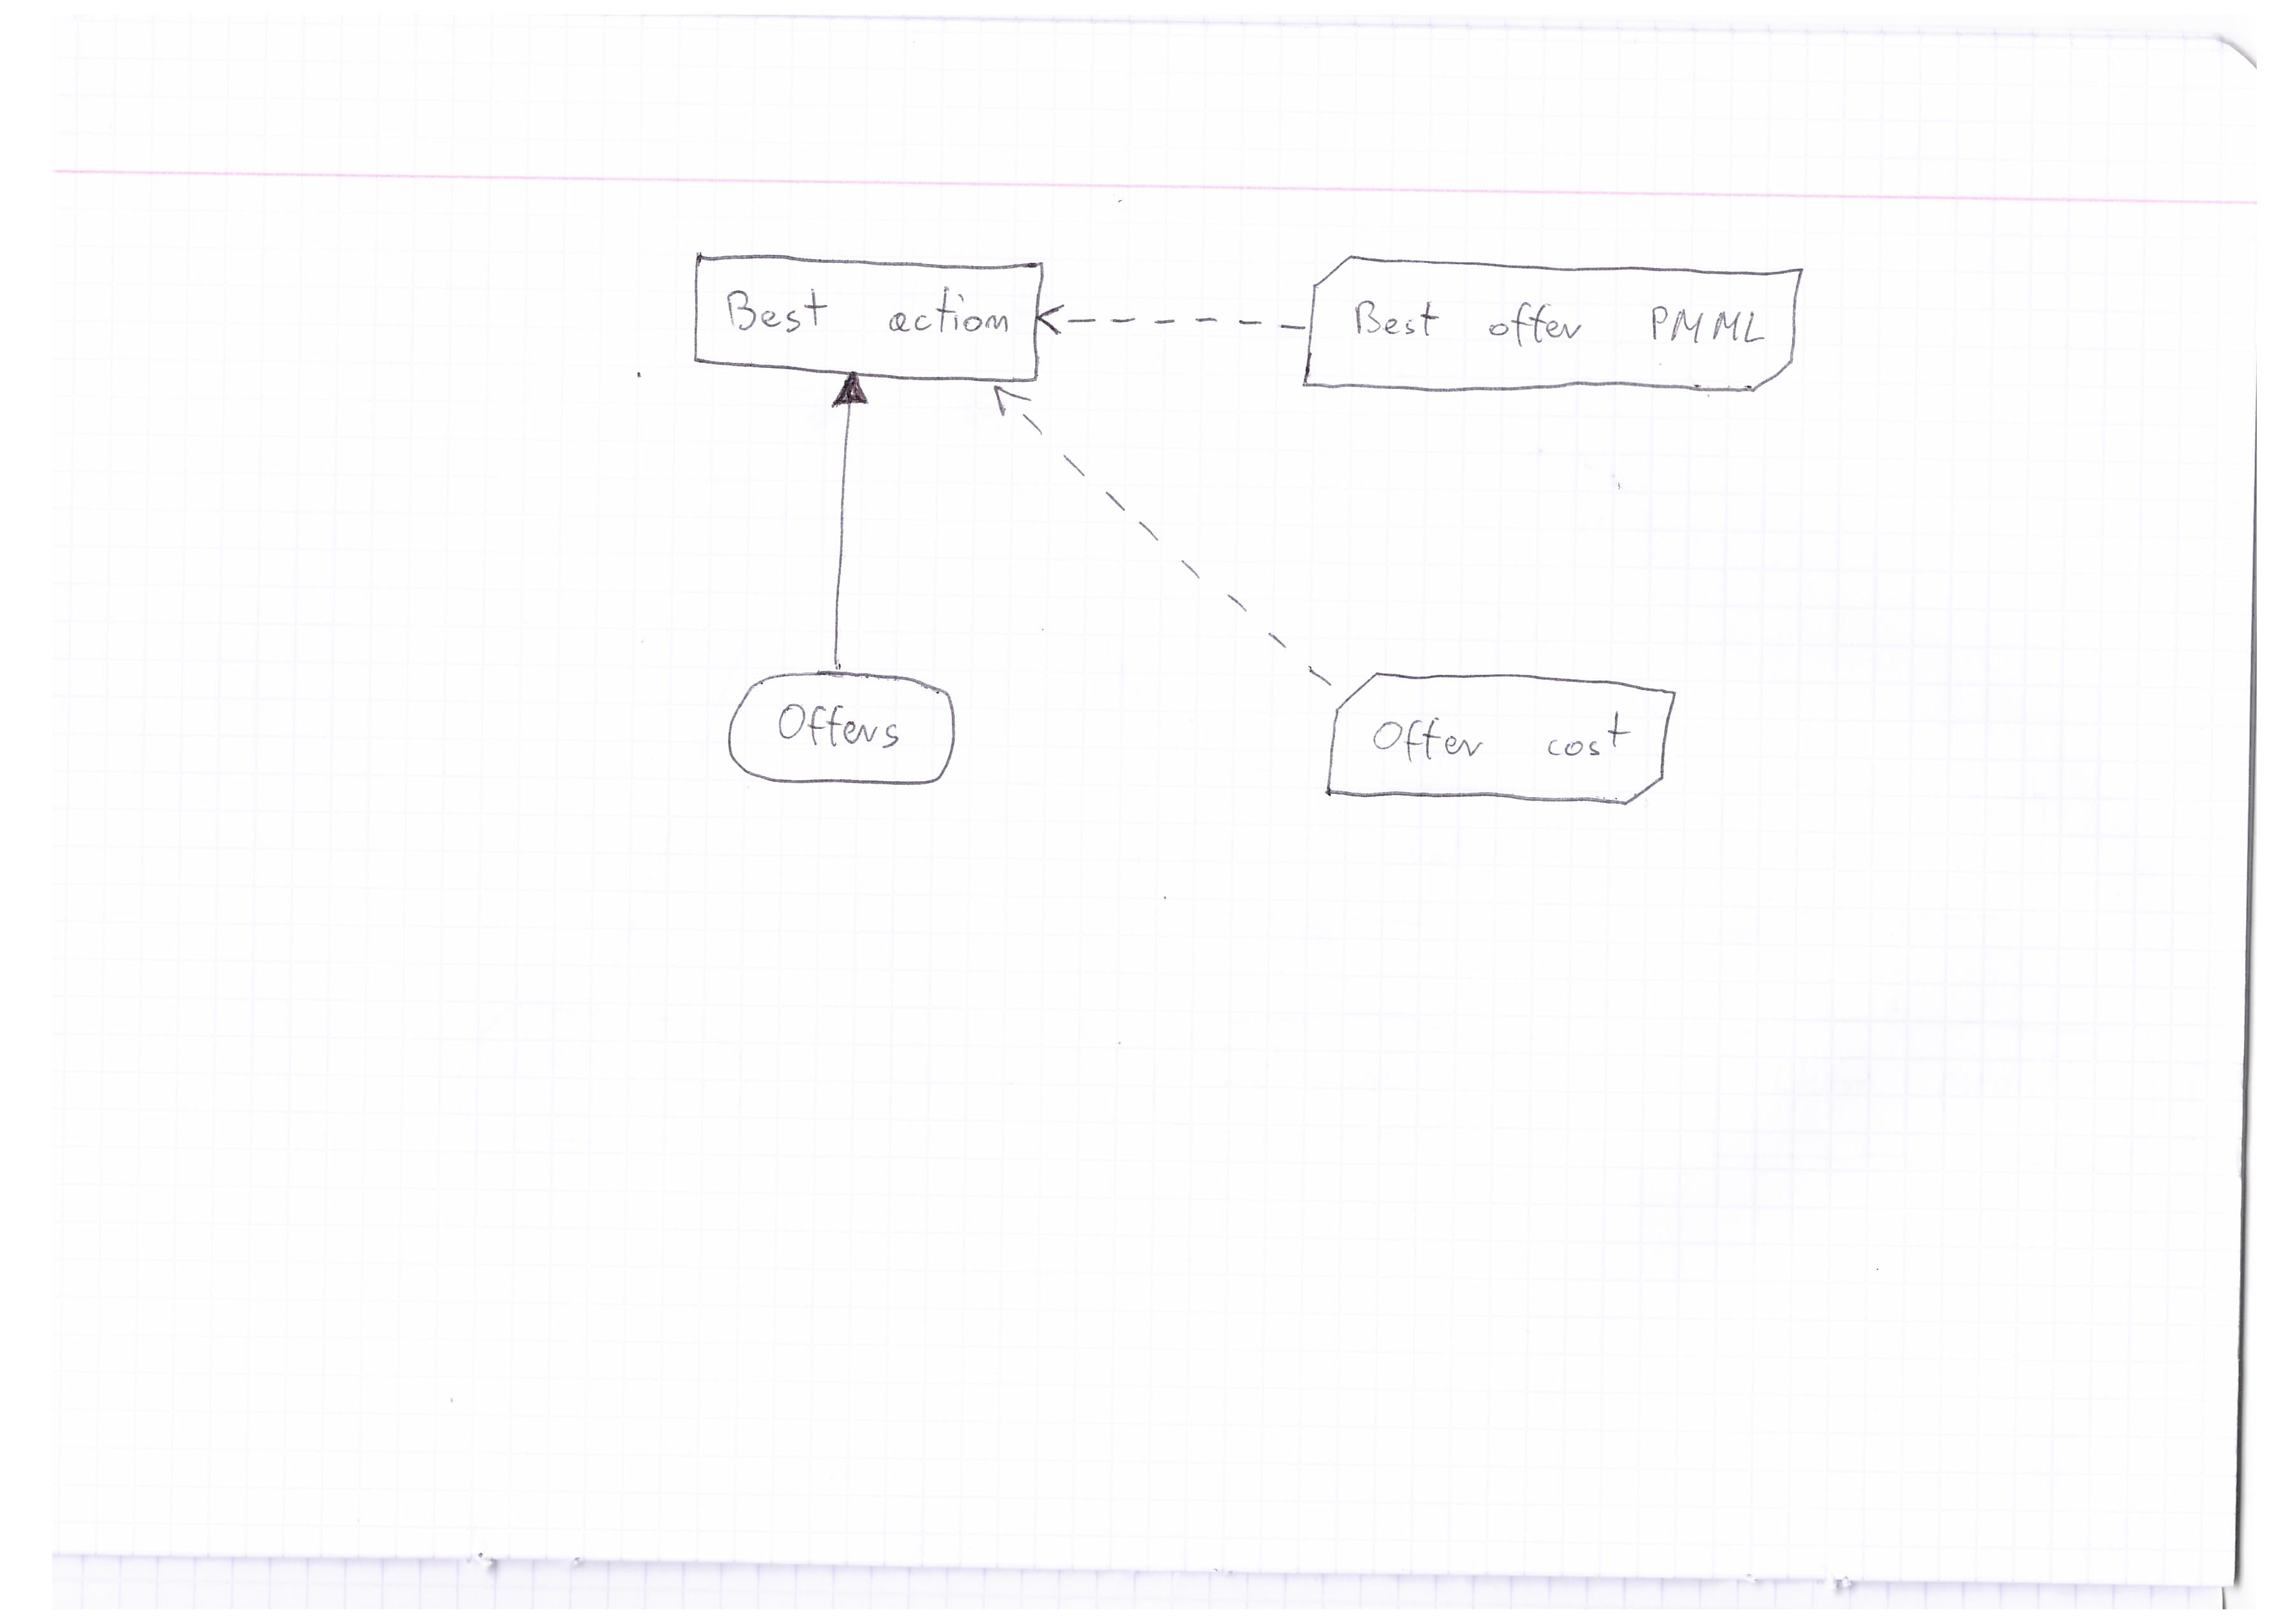 Best action
Best offer PMML
Offers
Offer cost